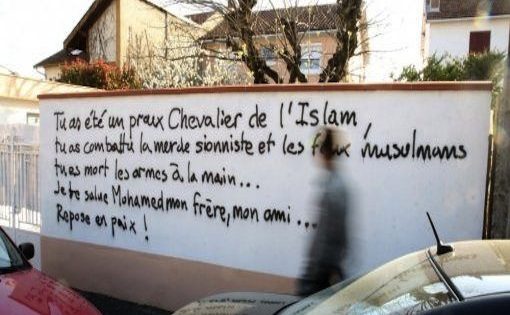 Tu as été un preux Chevalier de l'Islam,
tu as combattu la merde sionniste et les faux musulmans
tu es mort les armes à la main...
Je te salue Mohamed mon frère, mon ami...
Repose en paix !